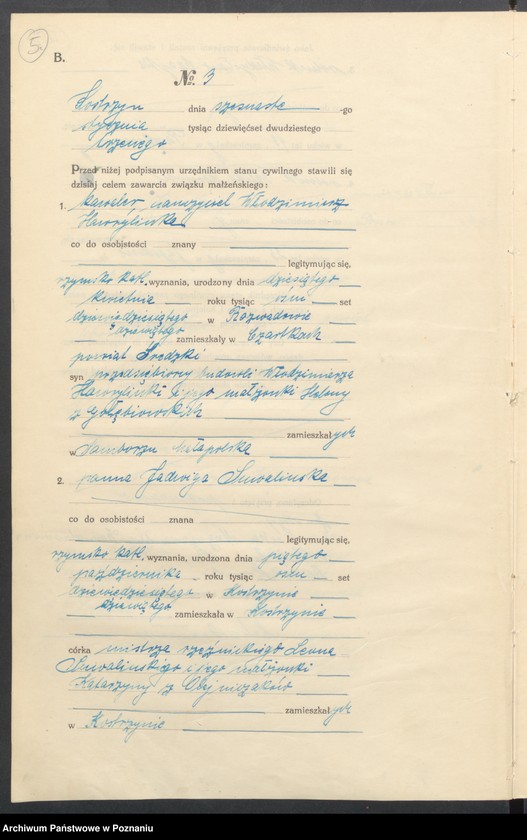 5.
B.
№ 3
Kostrzyn dnia szesnaste -go
stycznia tysiąc dziewięćset dwudziestego
trzeciego
Przed niżej podpisanym urzędnikiem stanu cywilnego stawili się
dzisiaj celem zawarcia związku małżeńskiego:
1. kawaler, nauczyciel Włodzimierz
co do osobistości znany
legitymując się,
rzymsko kat. wyznania, urodzony dnia dziesiątego
kwietnia roku tysiąc ośm set
dziewięćdziesiątego w Rozwadowie
dziewiątego zamieszkały w Czartkach
powiat Średzki
syn budowli Włodzimierza
i jego małżonki Heleny
z Gołębiowskich
zamieszkałych
w Samborzu Małopolska
2. panna Jadwiga Suwalińska
co do osobistości znana
legitymując się,
rzymsko kat. wyznania, urodzona dnia piątego
października roku tysiąc ośm set
dziewięćdziesiątego w Kostrzynie
dziewiątego zamieszkała w Kostrzynie
córka mistrza rzeźnickiego Leona
Suwalińskiego i jego małżonki
Katarzyny z
zamieszkałych
w Kostrzynie
Archiwum Państwowe w Poznaniu